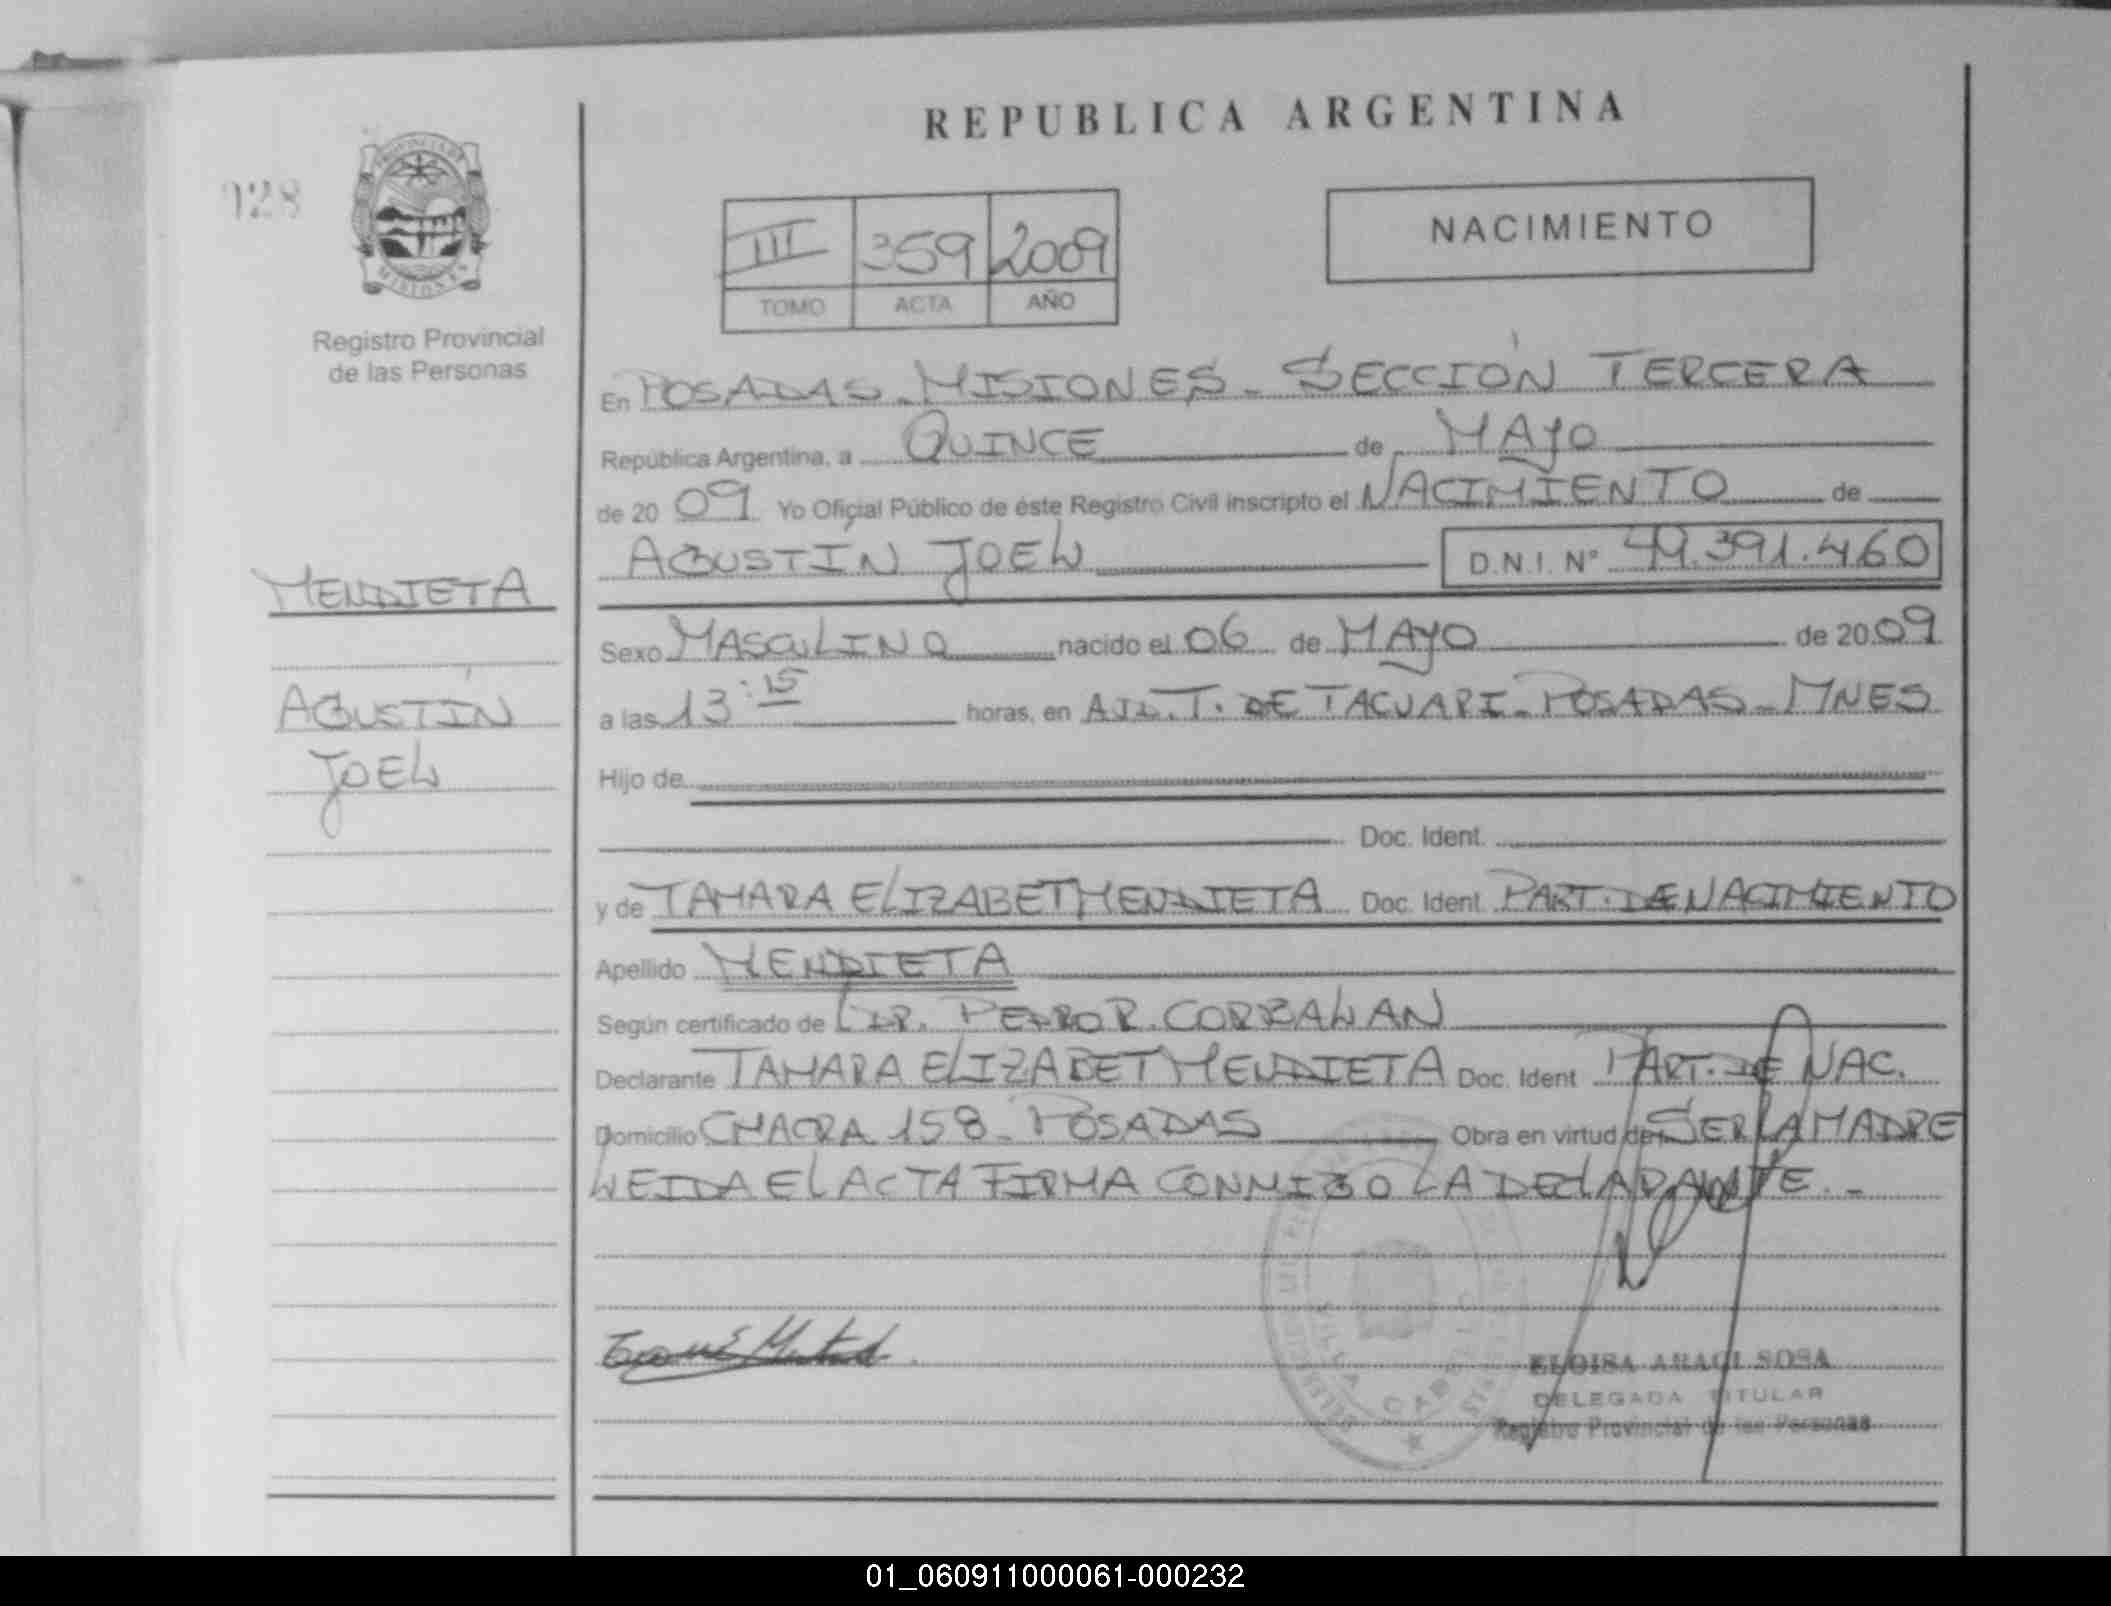 REPUBLICA ARGENTINA
128
PROVINCIA DE
MISIONES
Registro Provincial
de las Personas
NACIMIENTO
III 359 2009
TOMO ACTA AÑO
En POSADAS - MISIONES - SECCIÓN TERCERA
República Argentina, a QUINCE de MAYO
de 20 09 Yo Oficial Público de éste Registro Civil inscripto el NACIMIENTO de
AGUSTÍN JOEL D.N.I. Nº 49.391.460
MENDIETA
AGUSTÍN
JOEL
Sexo MASCULINO nacido el 06 de MAYO de 20 09
a las 13:15 horas, en T. DE TACUARI - POSADAS - MNES
Hijo de
Doc. Ident.
y de TAMARA ELIZABET MENDIETA Doc. Ident. PART. DE NACIMIENTO
Apellido MENDIETA
Según certificado de PEDRO R. CORBALAN
Declarante TAMARA ELIZABET MENDIETA Doc. Ident. PART. DE NAC.
Domicilio CHACRA 158 - POSADAS Obra en virtud de SER LA MADRE
LEIDA EL ACTA FIRMA CONMIGO LA DECLARANTE. -
ELOISA ARACI SOSA
DELEGADA TITULAR
Registro Provincial de las Personas
01_060911000061-000232